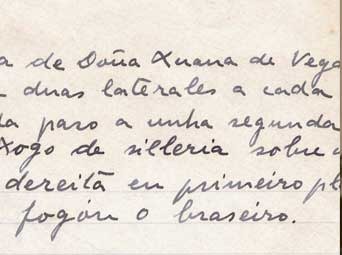 a de Doña Xuana de Vega
duas laterales a cada
da paso a unha segunda
Xogo de silleria sobre
dereita en primeiro pl
fogón o braseiro.